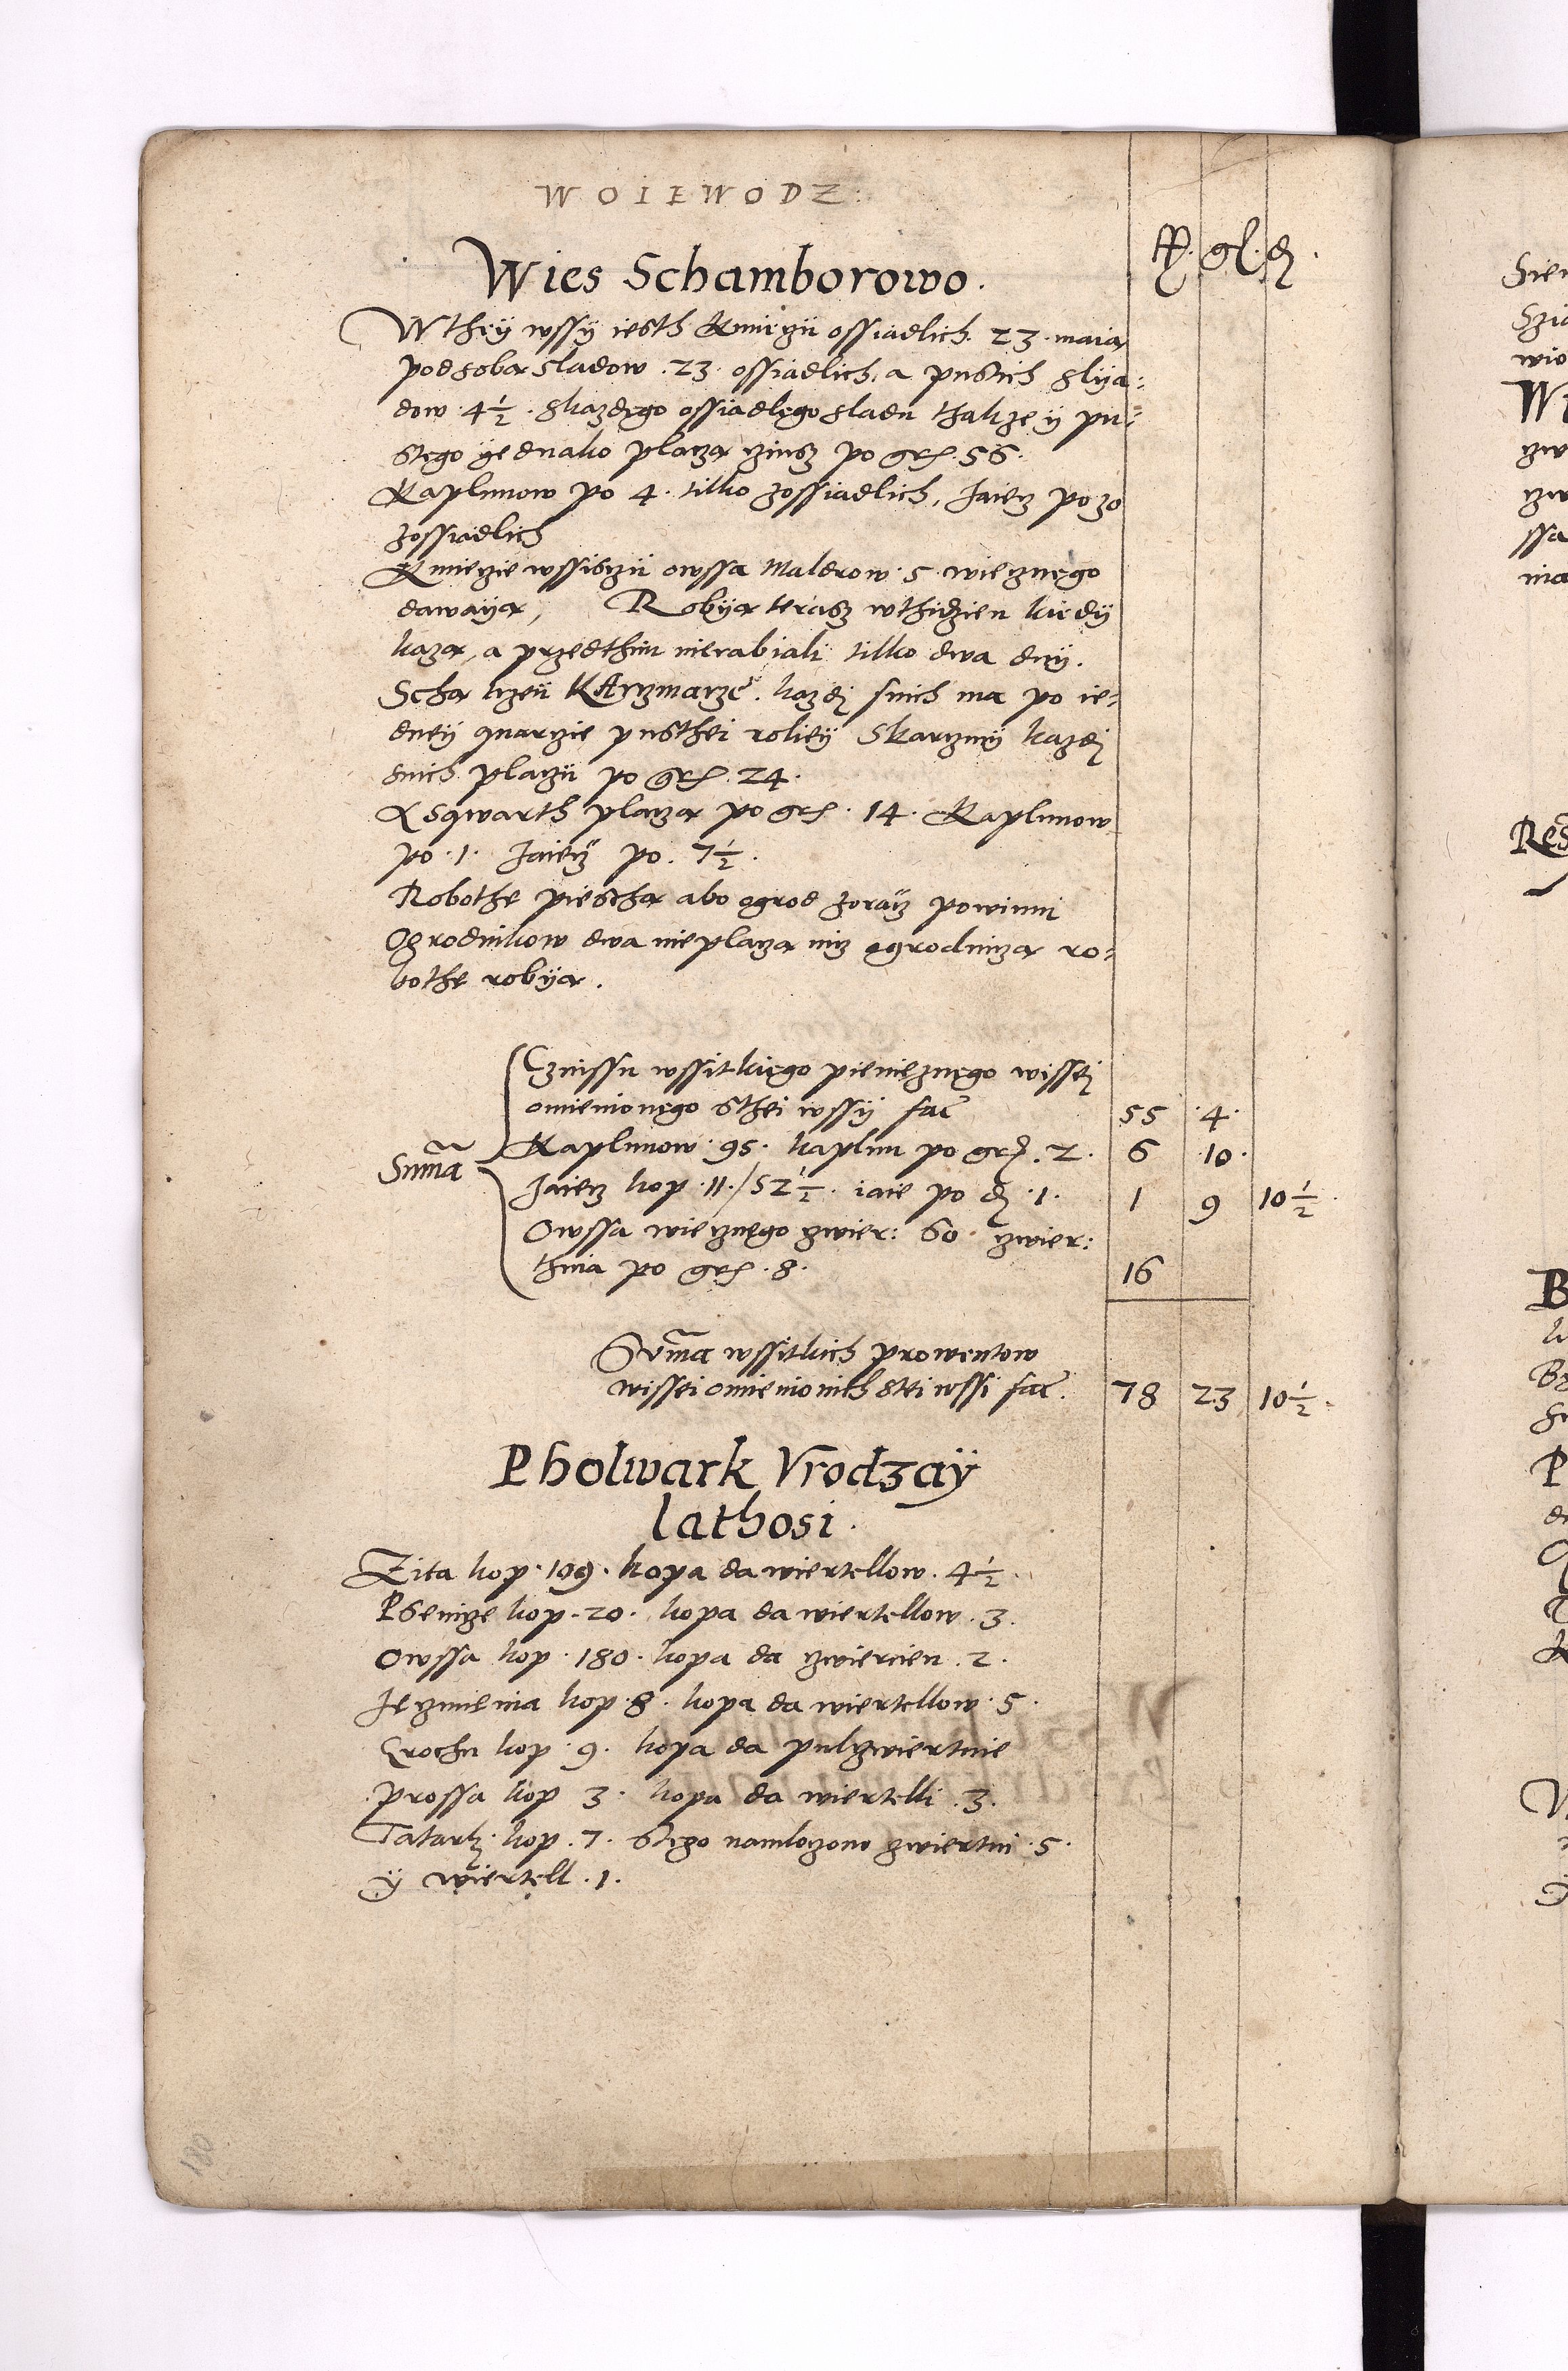 WOIEWODZ:
fl. gl. d.
Wies Schamborowo.
W they wssÿ iesth Kmieczÿ ossiadlich. 23. maia
pod soba sladow. 23. ossiadlich, a pustich slÿa:
dow. 4½. skazdego ossiadlego sladu thakze ÿ pu:
stego ÿednako placza czinsz po gr. 56.
Kaplunow po 4. tilko zossiadlich, Jaiecz po 30
zossiadlich
Kmieczie wssisczÿ owssa Malderow. 5. wiecznego
dawaÿa, Robÿa terasz wthidzien kiedÿ
kaza, a przedthim nierabiali tilko dwa dnÿ.
Scha trzeÿ Karczmarze. kazdj snich ma po ie:
dneÿ quarczie pusthei roliey Skarczmÿ kazdj
snich placzÿ po gr. 24.
Ksqwarth placza po gr. 14. Kaplunow
po. 1. Jaiecz po. 7½.
Robothe piescha abo ogrod zoracz powinni
Ogrodnikow dwa nie placza nicz ogrodnicza ro:
bothe robÿa.
Suma
Cznissu wssitkiego pienieznego wissej
omienionego sthei wssÿ fac 55 4.
Kaplunow. 95. kaplun po gr. 2. 6 10.
Jaiecz kop. 11./52½. iaie po d. 1. 1 9 10½.
Owssa wiecznego czwier: 60 czwier:
thnia po gr. 8. 16
Suma wssitkich prowentow
wissei omienionich stei wssi fac. 78 23 10½.
Pholwark Vrodzaÿ
lathosi.
Zita kop. 109. kopa da wiertellow. 4½.
Psenicze kop. 20. kopa da wiertellow. 3.
Owssa kop. 180. kopa da czwiercien. 2.
Jeczmienia kop. 8. kopa da wiertellow. 5.
Grochu kop. 9. kopa da pulczwiertnie
prossa kop 3. kopa da wiertelli. 3.
Tatarki kop. 7. stego namloczono czwiertni. 5.
ÿ wiertell. 1.
180